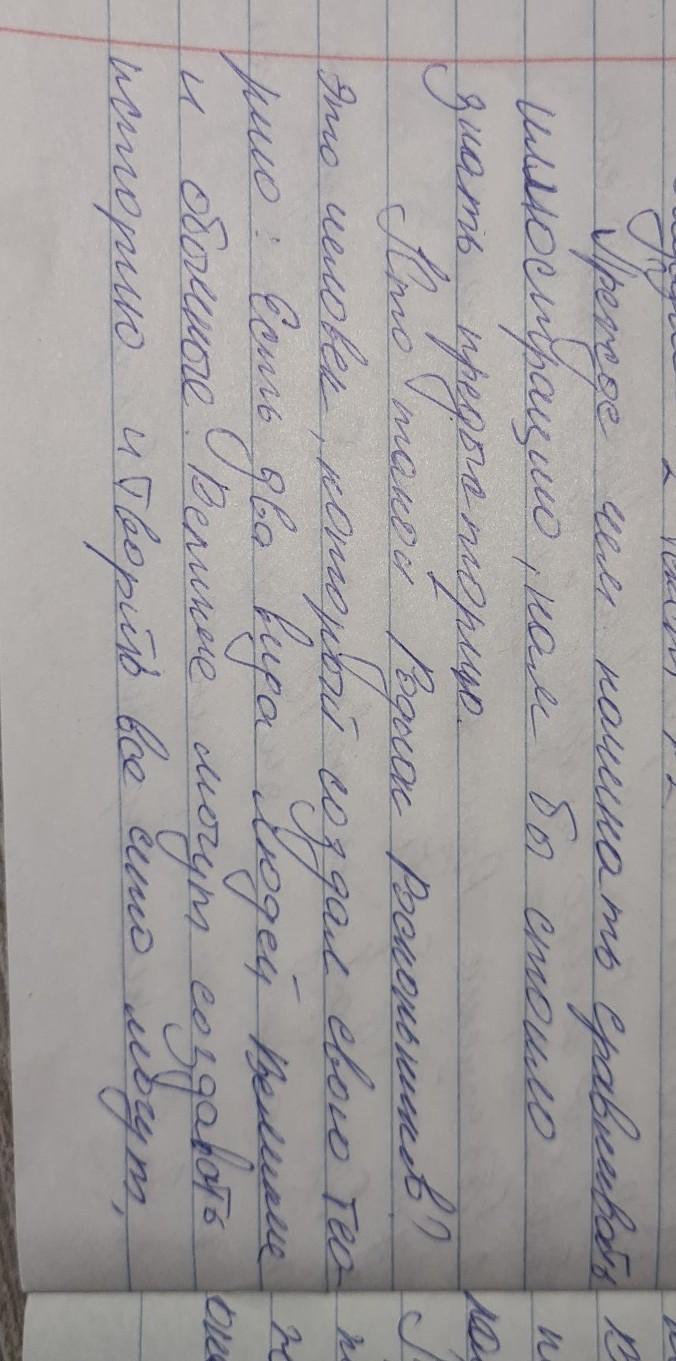 Прежде чем начинать сравнивать
иллюстрацию, нам бы стоило
знать предысторию.
Кто такой Родион Раскольников?
Это человек, который создал свою тео
рию: Есть два вида людей, великие
и обычные. Великие могут создавать
историю и творить все что могут,